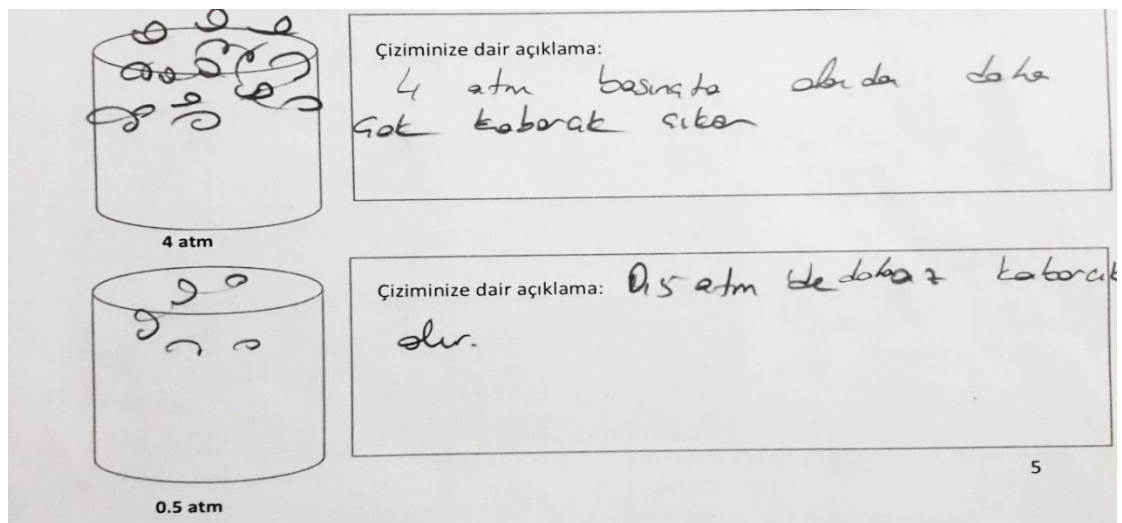 Çiziminize dair açıklama:
4 atm basınçta olanda daha
çok kabarcık çıkar
4 atm
Çiziminize dair açıklama: 0,5 atm de daha az kabarcık
olur.
5
0.5 atm